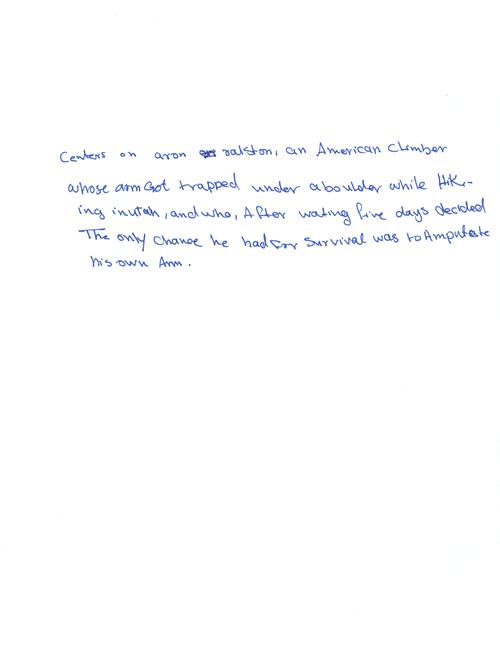 Centers on aron ralston, an American Climber
whose arm Got trapped under a boulder while Hik-
ing in utah, and who, After wating five days decided
The only chance he had for survival was to Amputate
his own Arm.